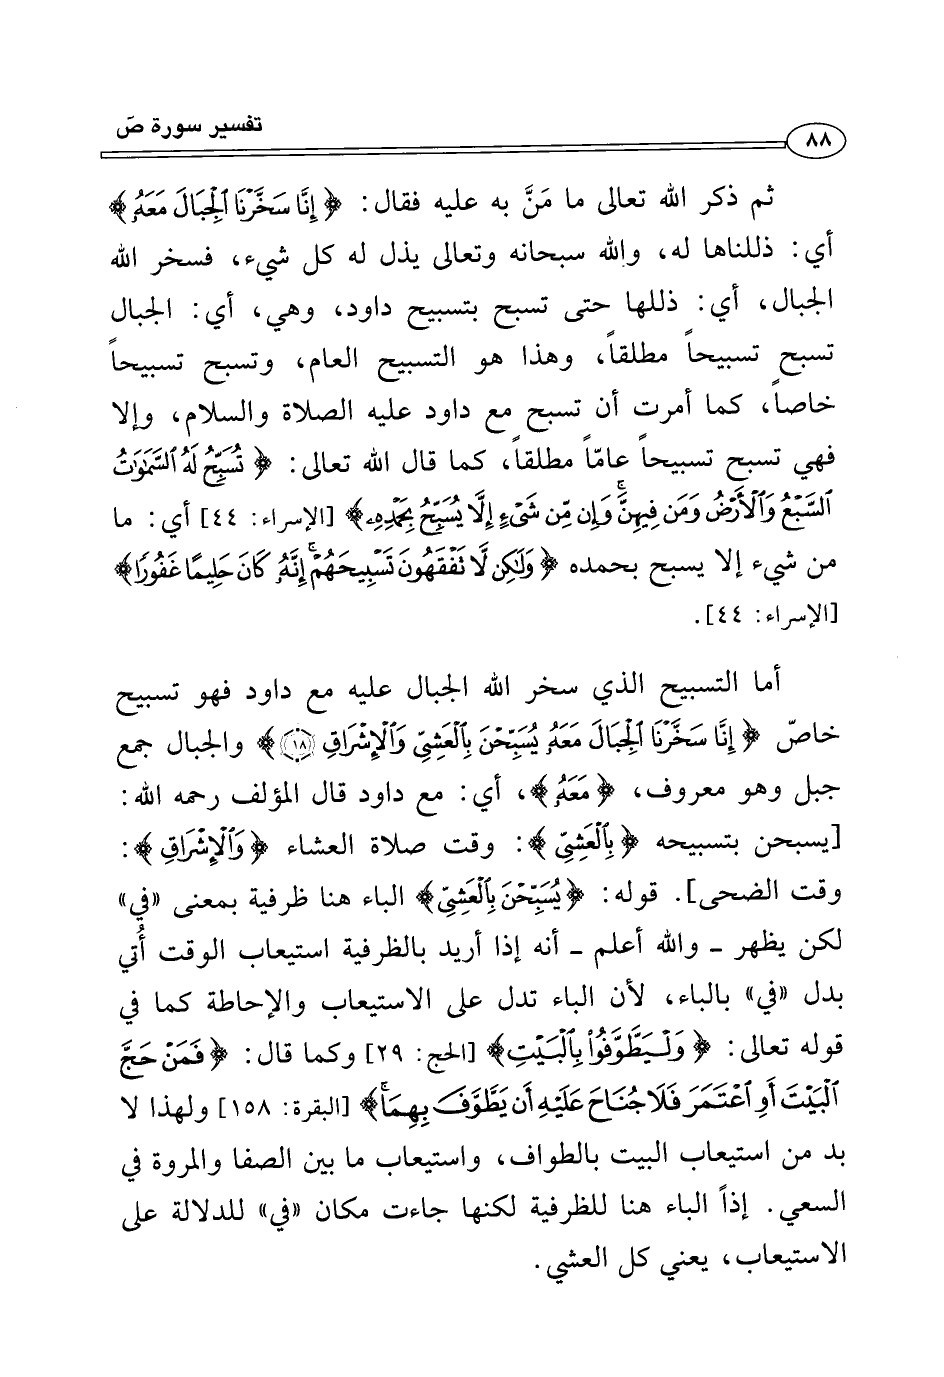 تفسير سورة صَ
٨٨
ثم ذكر الله تعالى ما مَنَّ به عليه فقال: ﴿إِنَّا سَخَّرْنَا ٱلْجِبَالَ مَعَهُۥ﴾
أي: ذللناها له، والله سبحانه وتعالى يذل له كل شيء، فسخر الله
الجبال، أي: ذللها حتى تسبح بتسبيح داود، وهي، أي: الجبال
تسبح تسبيحاً مطلقاً، وهذا هو التسبيح العام، وتسبح تسبيحاً
خاصاً، كما أمرت أن تسبح مع داود عليه الصلاة والسلام، وإلا
فهي تسبح تسبيحاً عامّاً مطلقاً، كما قال الله تعالى: ﴿تُسَبِّحُ لَهُ ٱلسَّمَٰوَٰتُ
ٱلسَّبْعُ وَٱلْأَرْضُ وَمَن فِيهِنَّ ۚ وَإِن مِّن شَىْءٍ إِلَّا يُسَبِّحُ بِحَمْدِهِۦ﴾ [الإسراء: ٤٤] أي: ما
من شيء إلا يسبح بحمده ﴿وَلَٰكِن لَّا تَفْقَهُونَ تَسْبِيحَهُمْ ۗ إِنَّهُۥ كَانَ حَلِيمًا غَفُورًا﴾
[الإسراء: ٤٤].
أما التسبيح الذي سخر الله الجبال عليه مع داود فهو تسبيح
خاصّ ﴿إِنَّا سَخَّرْنَا ٱلْجِبَالَ مَعَهُۥ يُسَبِّحْنَ بِٱلْعَشِىِّ وَٱلْإِشْرَاقِ ١٨﴾ والجبال جمع
جبل وهو معروف، ﴿مَعَهُۥ﴾، أي: مع داود قال المؤلف رحمه الله:
[يسبحن بتسبيحه ﴿بِٱلْعَشِىِّ﴾: وقت صلاة العشاء ﴿وَٱلْإِشْرَاقِ﴾:
وقت الضحى]. قوله: ﴿يُسَبِّحْنَ بِٱلْعَشِىِّ﴾ الباء هنا ظرفية بمعنى «في»
لكن يظهر ـ والله أعلم ـ أنه إذا أريد بالظرفية استيعاب الوقت أُتي
بدل «في» بالباء، لأن الباء تدل على الاستيعاب والإحاطة كما في
قوله تعالى: ﴿وَلْيَطَّوَّفُوا۟ بِٱلْبَيْتِ﴾ [الحج: ٢٩] وكما قال: ﴿فَمَنْ حَجَّ
ٱلْبَيْتَ أَوِ ٱعْتَمَرَ فَلَا جُنَاحَ عَلَيْهِ أَن يَطَّوَّفَ بِهِمَا ۚ﴾ [البقرة: ١٥٨] ولهذا لا
بد من استيعاب البيت بالطواف، واستيعاب ما بين الصفا والمروة في
السعي. إذاً الباء هنا للظرفية لكنها جاءت مكان «في» للدلالة على
الاستيعاب، يعني كل العشي.